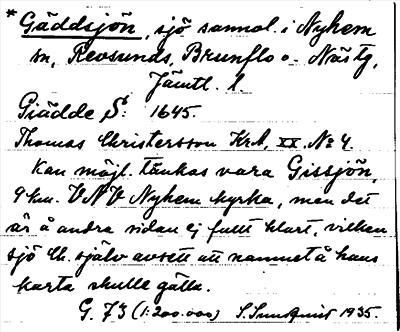 * Gäddsjön, sjö sannol. i Nyhem
sn, Revsunds, Brunflo o. Näs tg,
Jämtl. l.
Giädde S: 1645.
Thomas Christersson KrA, XX. No 4.
Kan möjl. tänkas vara Gissjön,
9 km. VNV Nyhem kyrka, men det
är å andra sidan ej fullt klart, vilken
sjö Ch. själv avsett att namnet å hans
karta skulle gälla.
G. 73 (1:200.000) S. Sundquist 1935.